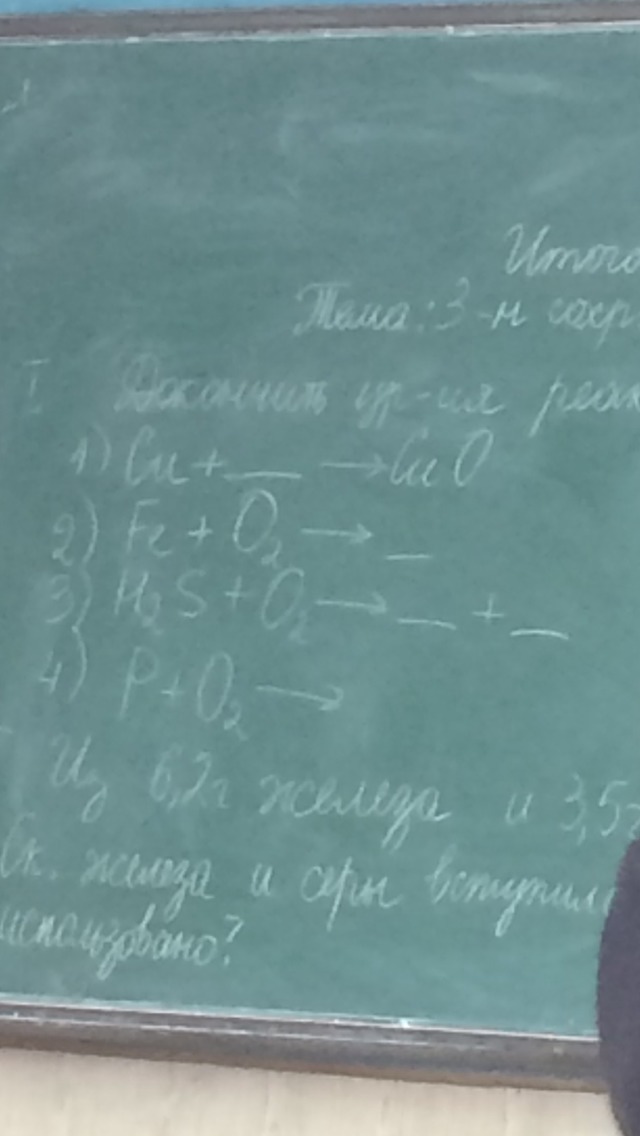 Итого
Тема: З-н сохр
I Закончить ур-ия реак
1) Cu + __ → CuO
2) Fe + O₂ → __
3) H₂S + O₂ → __ + __
4) P + O₂ →
Из 6,2г железа и 3,5г
Ск. железа и серы вступило
использовано?